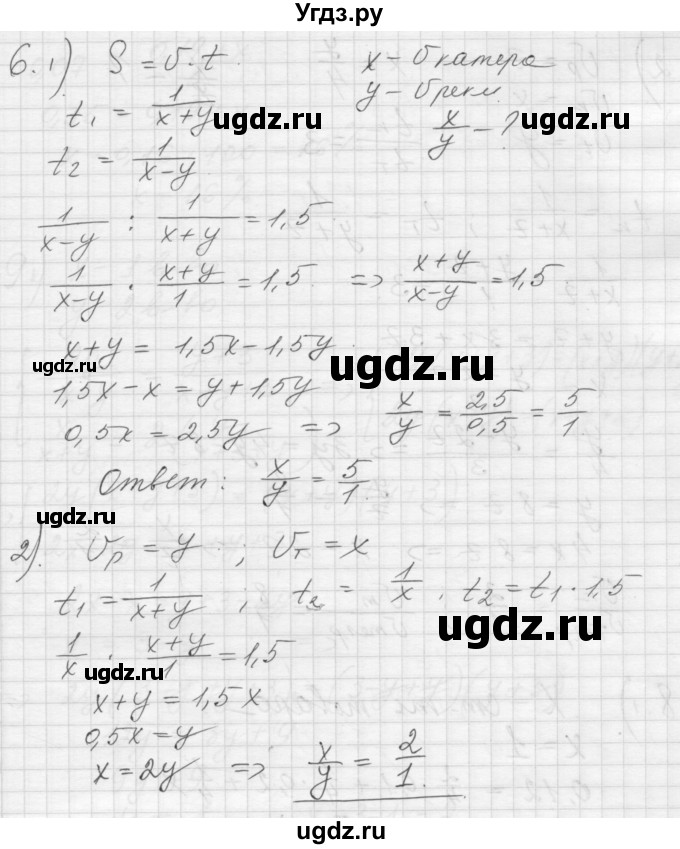 Угдз.ру
6. 1) S = v · t. x – v катера
t₁ = 1/(x+y) y – v реки
ugdz.ru ugdz.ru
x/y – ?
t₂ = 1/(x–y)
1/(x–y) : 1/(x+y) = 1,5
1/(x–y) · (x+y)/1 = 1,5 => (x+y)/(x–y) = 1,5
x+y = 1,5x – 1,5y
ugdz.ru ugdz.ru
1,5x – x = y + 1,5y
0,5x = 2,5y => x/y = 2,5/0,5 = 5/1
Ответ: x/y = 5/1.
ugdz.ru
2). vр = y ; vт = x
t₁ = 1/(x+y) ; t₂ = 1/x . t₂ = t₁ · 1,5
ugdz.ru
1/x · (x+y)/1 = 1,5
ugdz.ru
x+y = 1,5x
0,5x = y
x = 2y => x/y = 2/1.
ugdz.ru
ugdz.ru